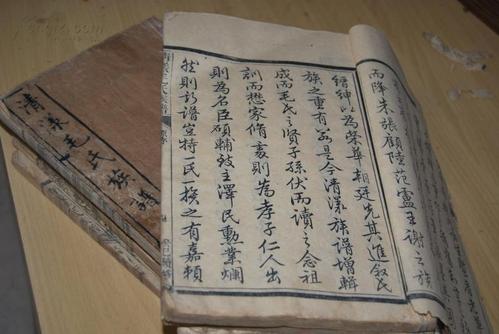 清漾毛氏族譜
而降朱張顧陸范盧王謝之族
縉紳以為榮華朝廷先其進叙氏
族之重有若是今清漾族譜增輯
成而毛氏之賢子孫伏而讀之念祖
訓而懋家脩處則為孝子仁人出
則為名臣碩輔致主澤民勳業爛
然則斯譜豈特一氏一族之有嘉賴